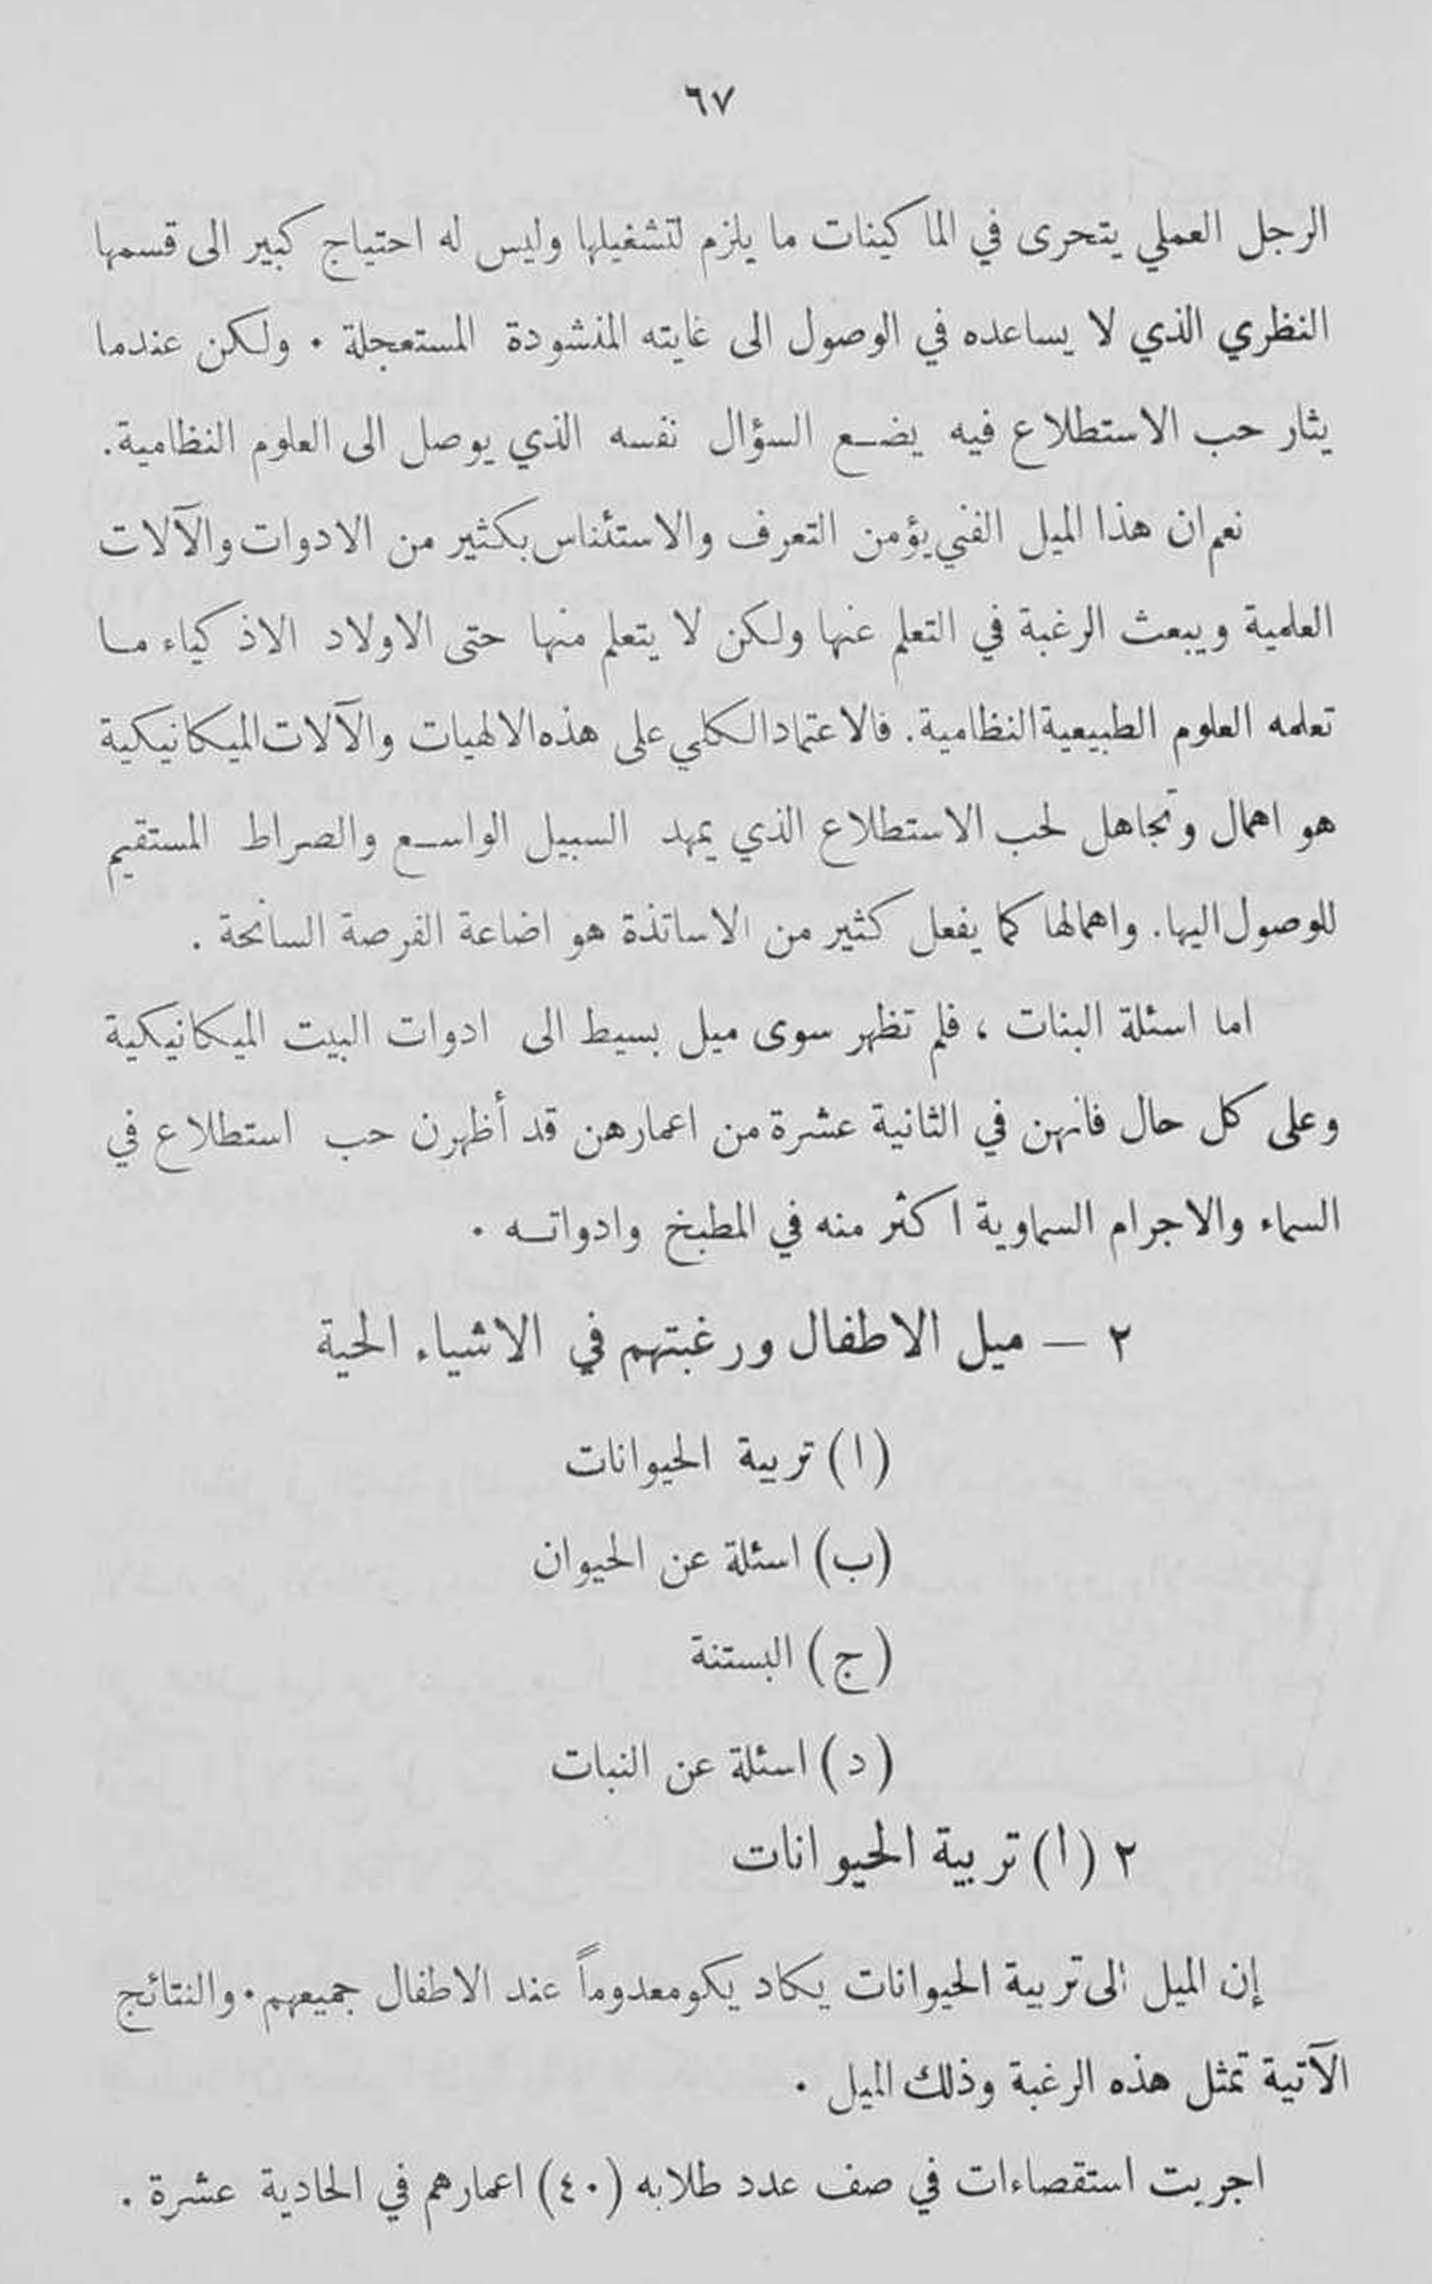 ٦٧
الرجل العملي يتحرى في الماكينات ما يلزم لتشغيلها وليس له احتياج كبير الى قسمها
النظري الذي لا يساعده في الوصول الى غايته المنشودة المستعجلة . ولكن عندما
يثار حب الاستطلاع فيه يضع السؤال نفسه الذي يوصل الى العلوم النظامية.
نعم ان هذا الميل الفني يؤمن التعرف والاستئناس بكثير من الادوات والآلات
العلمية ويبعث الرغبة في التعلم عنها ولكن لا يتعلم منها حتى الاولاد الاذكياء ما
تعلمه العلوم الطبيعية النظامية. فالاعتماد الكلي على هذه الالهيات والآلات الميكانيكية
هو اهمال وتجاهل لحب الاستطلاع الذي يمهد السبيل الواسع والصراط المستقيم
للوصول اليها. واهمالها كما يفعل كثير من الاساتذة هو اضاعة الفرصة السانحة .
اما اسئلة البنات ، فلم تظهر سوى ميل بسيط الى ادوات البيت الميكانيكية
وعلى كل حال فانهن في الثانية عشرة من اعمارهن قد أظهرن حب استطلاع في
السماء والاجرام السماوية اكثر منه في المطبخ وادواته .
٢ - ميل الاطفال ورغبتهم في الاشياء الحية
(ا) تربية الحيوانات
(ب) اسئلة عن الحيوان
(ج) البستنة
(د) اسئلة عن النبات
٢ (ا) تربية الحيوانات
إن الميل الى تربية الحيوانات يكاد يكو معدوماً عند الاطفال جميعهم . والنتائج
الآتية تمثل هذه الرغبة وذلك الميل .
اجريت استقصاءات في صف عدد طلابه (٤٠) اعمارهم في الحادية عشرة .